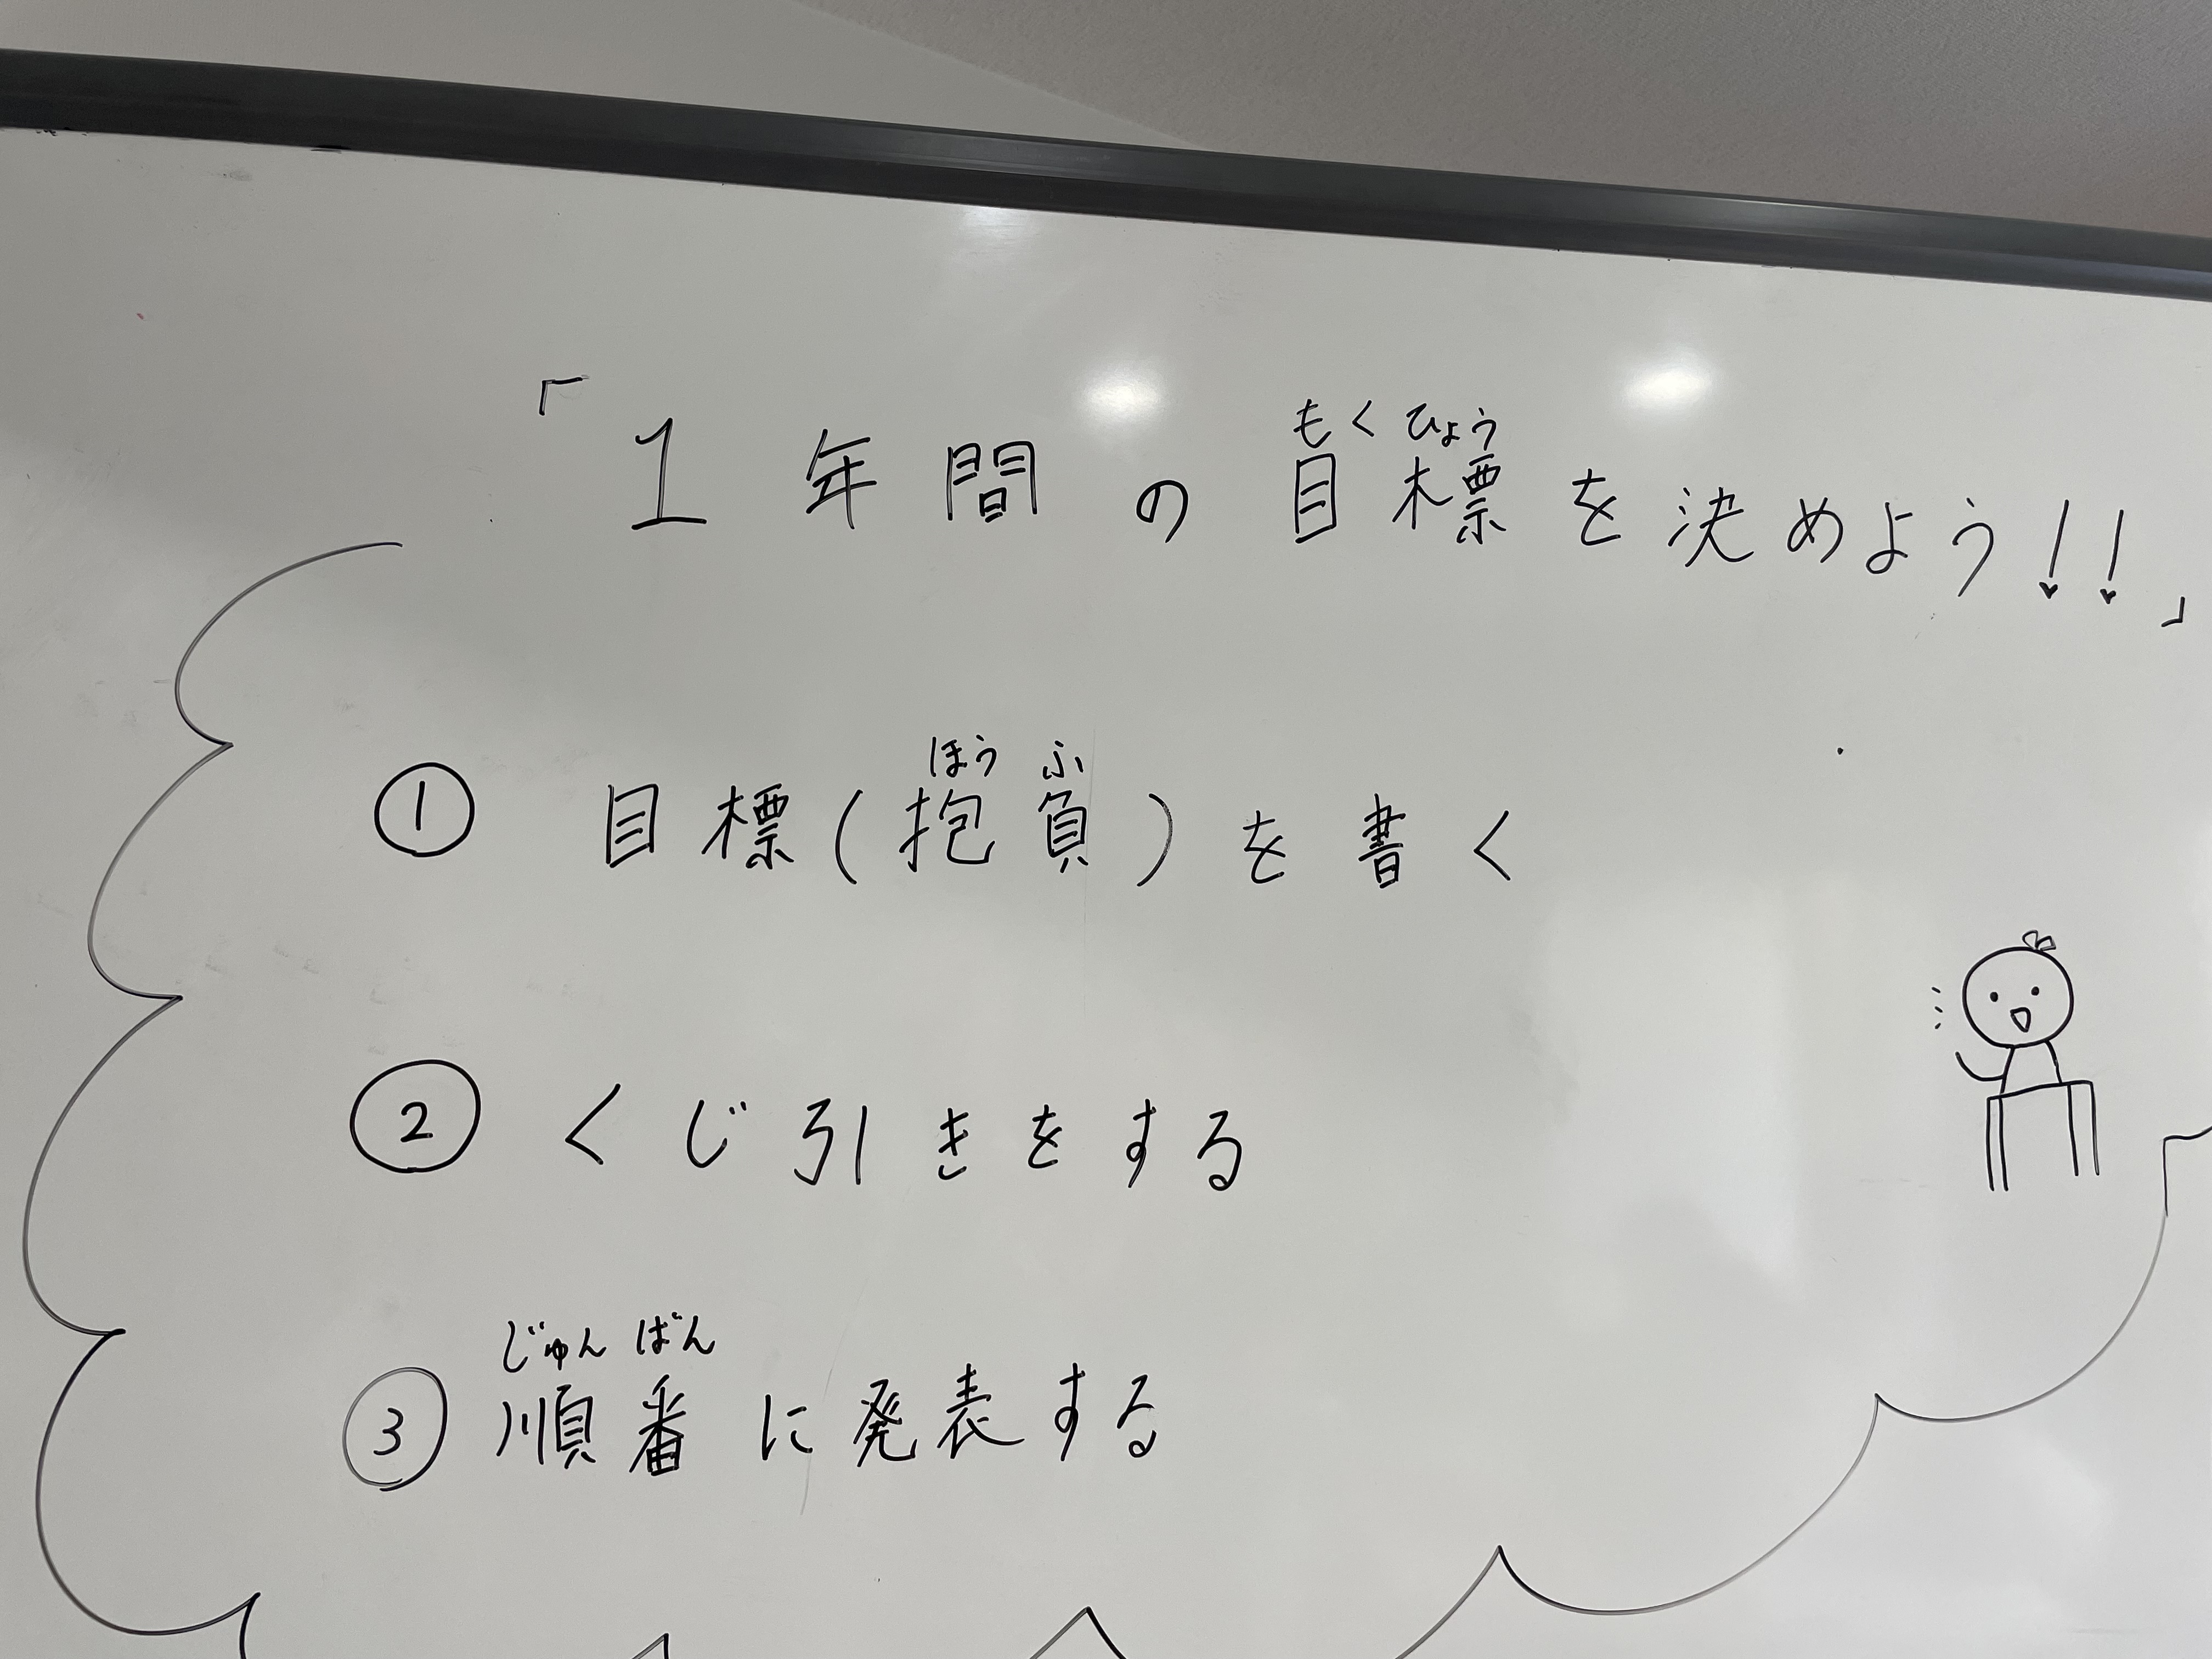 もくひょう
「1年間の目標を決めよう!!」
ほうふ
① 目標(抱負)を書く
② くじ引きをする
じゅんばん
③ 順番に発表する